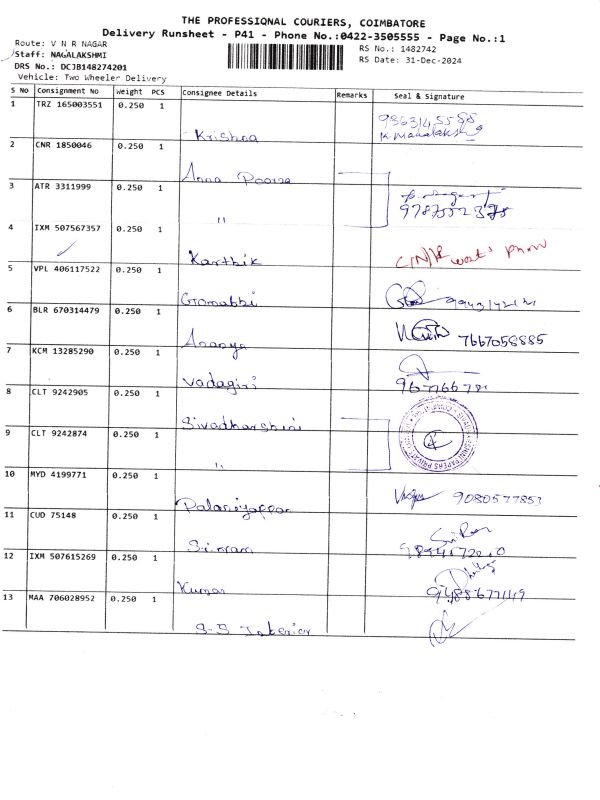 THE PROFESSIONAL COURIERS, COIMBATORE
Delivery Runsheet - P41 - Phone No.:0422-3505555 - Page No.:1
Route: V N R NAGAR
Staff: NAGALAKSHMI
DRS No.: DCJB148274201
Vehicle: Two Wheeler Delivery
RS No.: 1482742
RS Date: 31-Dec-2024
S No Consignment No Weight PCS Consignee Details Remarks Seal & Signature
1 TRZ 165003551 0.250 1 Krishna
2 CNR 1850046 0.250 1 Anna Poorna
3 ATR 3311999 0.250 1 "
4 IXM 507567357 0.250 1 Karthik
5 VPL 406117522 0.250 1
6 BLR 670314479 0.250 1 Ananya 7667058885
7 KCM 13285290 0.250 1 Vadagiri
8 CLT 9242905 0.250 1 Sivadharshini
9 CLT 9242874 0.250 1 "
10 MYD 4199771 0.250 1 Palaniyappan 9080577853
11 CUD 75148 0.250 1 Sriram
12 IXM 507615269 0.250 1 Kumar
13 MAA 706028952 0.250 1 S-S Interior